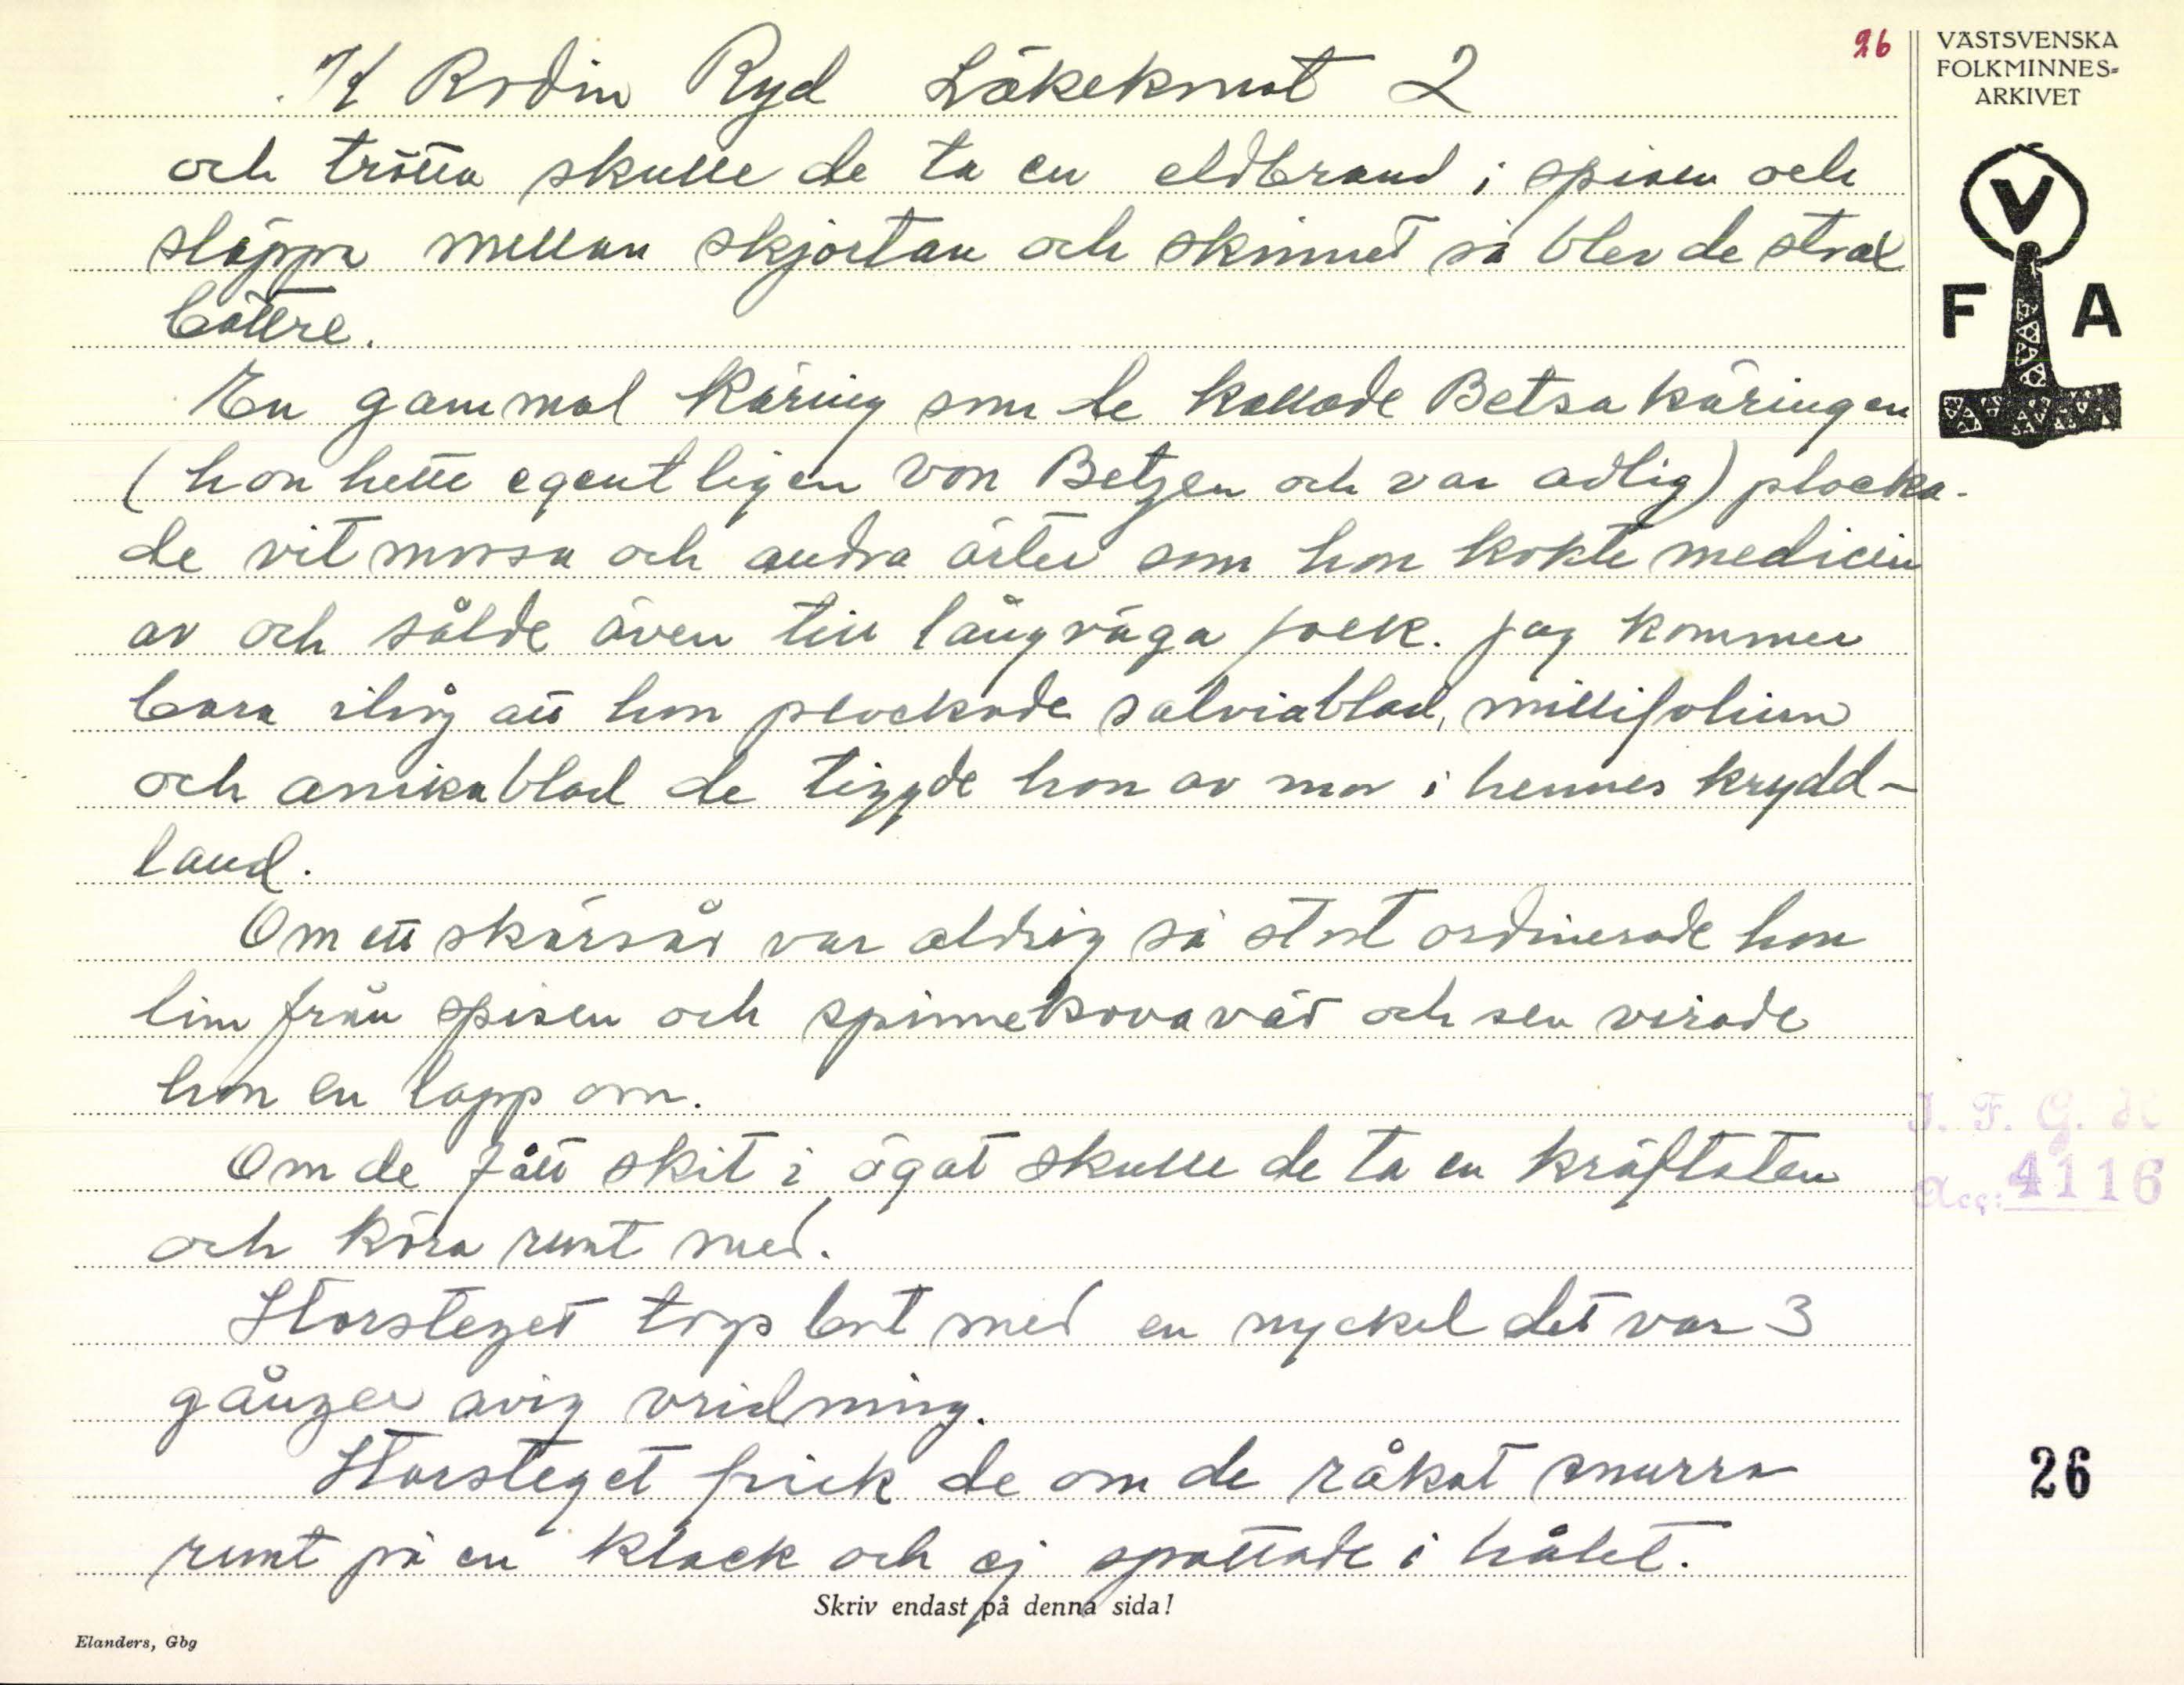 K Rodin Ryd Läkekonst 2
26
VÄSTSVENSKA
FOLKMINNES-
ARKIVET
V
F A
och trötta skulle de ta en eldbrand i spisen och
släppa mellan skjortan och skinnet så blev de strax
bättre.
En gammal käring som de kallade Betsakäringen
(hon hette egentligen von Betzen och var adlig) plocka-
de vit mossa och andra örter som hon kokte medicin
av och sålde även till långväga folk. Jag kommer
bara ihåg att hon plockade salviablad, millifolium
och arnikablad de tiggde hon av mor i hennes krydd-
land.
Om ett skärsår var aldrig så stort ordinerade hon
lim från spisen och spinnekovaväv och sen virade
hon en lapp om.
Om de fått skit i ögat skulle de ta en kräftsten
och köra runt med.
Storsteget togs bort med en nyckel det var 3
gånger avig vridning.
Storsteget fick de om de råkat snurra
runt på en klack och ej spottade i hålet.
I. F. G. H
Acc: 4116
26
Skriv endast på denna sida!
Elanders, Gbg